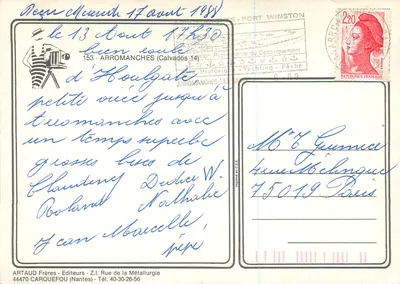 Reçu Mercredi 17 août 1988
le 13 Aout 17h30
bien roulé
153 - ARROMANCHES (Calvados 14)
d'Houlgate
petite virée jusqu'à
Arromanches avec
un temps superbe
grosses bises de
Claudine Didier W.
Roland Nathalie
Jean Marcelle
pépé
PORT WINSTON
ARROMANCHES
2,20
REPUBLIQUE FRANCAISE
M. T Guennec
4 rue Mélingue
75019 Paris
ARTAUD Frères - Editeurs - Z.I. Rue de la Métallurgie
44470 CARQUEFOU (Nantes) - Tél. 40-30-26-56